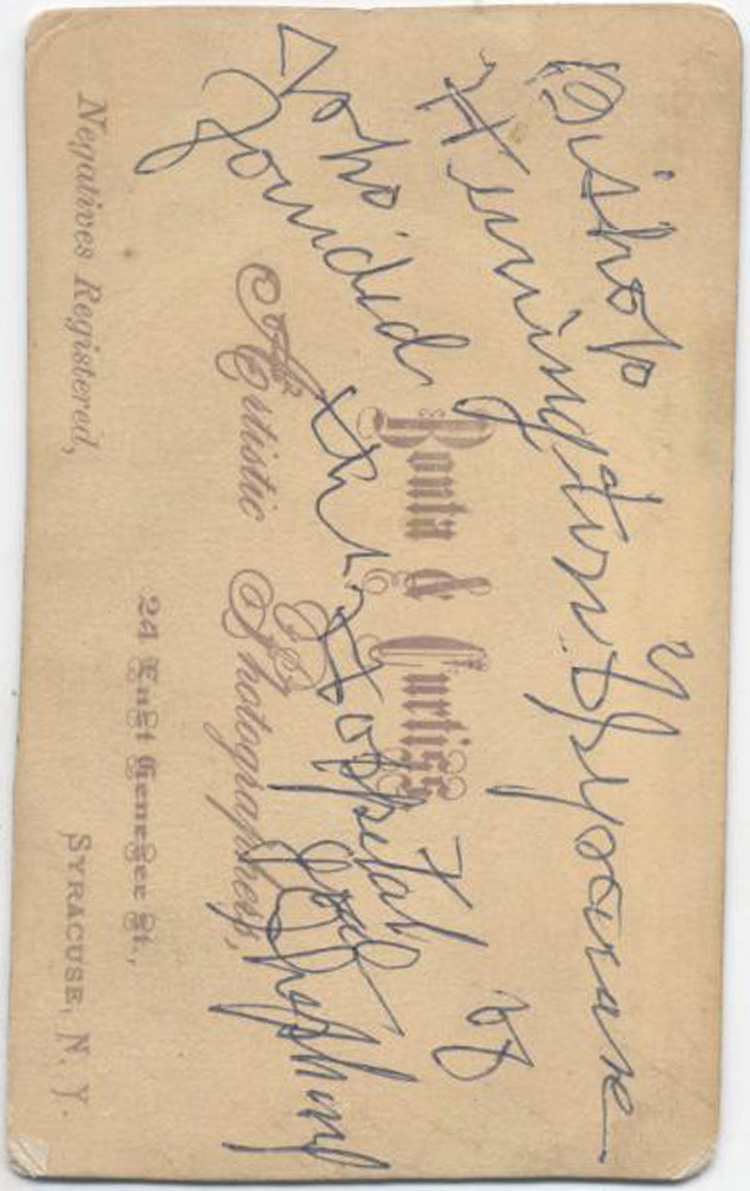 Bishop Hunington of Syracuse
Who founded the Hospital of
Good
Bonta & Curtiss
Artistic Photographers,
24 East Genesee St.,
Negatives Registered, SYRACUSE, N. Y.